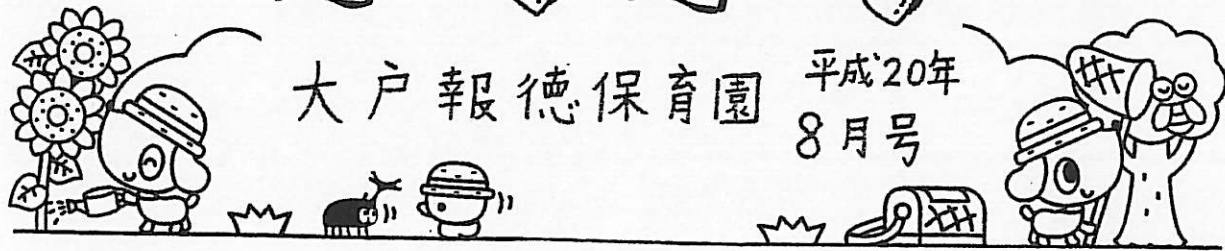 大戸報徳保育園
平成20年
8月号